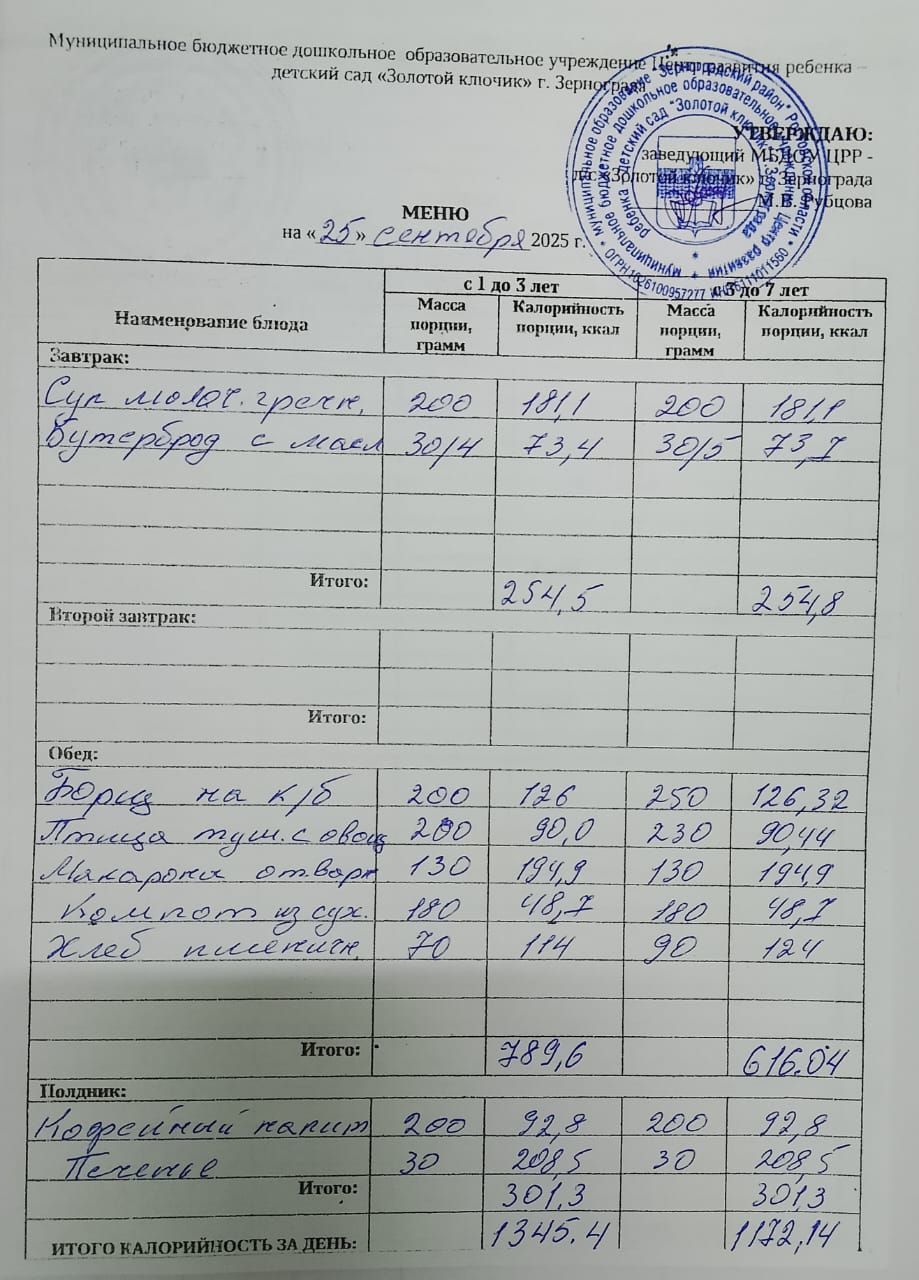 Муниципальное бюджетное дошкольное образовательное учреждение Центр развития ребенка –
детский сад «Золотой ключик» г. Зернограда
УТВЕРЖДАЮ:
заведующий МБДОУ ЦРР -
д/с «Золотой ключик» г. Зернограда
М.В. Рубцова
МЕНЮ
на «25» сентября 2025 г.
Наименование блюда
с 1 до 3 лет с 3 до 7 лет
Масса порции, грамм Калорийность порции, ккал Масса порции, грамм Калорийность порции, ккал
Завтрак:
Суп молоч. гречн. 200 181,1 200 181,1
Бутерброд с масл 30/4 73,4 30/5 73,7
Итого: 254,5 254,8
Второй завтрак:
Итого:
Обед:
Борщ на к/б 200 126 250 126,32
Птица туш. с овощ 200 90,0 230 90,44
Макароны отварн 130 194,9 130 194,9
Компот из сух. 180 48,7 180 48,7
Хлеб пшеничн. 70 114 90 124
Итого: 789,6 616.04
Полдник:
Кофейный напит 200 92,8 200 92,8
Печенье 30 208,5 30 208,5
Итого: 301,3 301,3
ИТОГО КАЛОРИЙНОСТЬ ЗА ДЕНЬ: 1345.4 1172,14